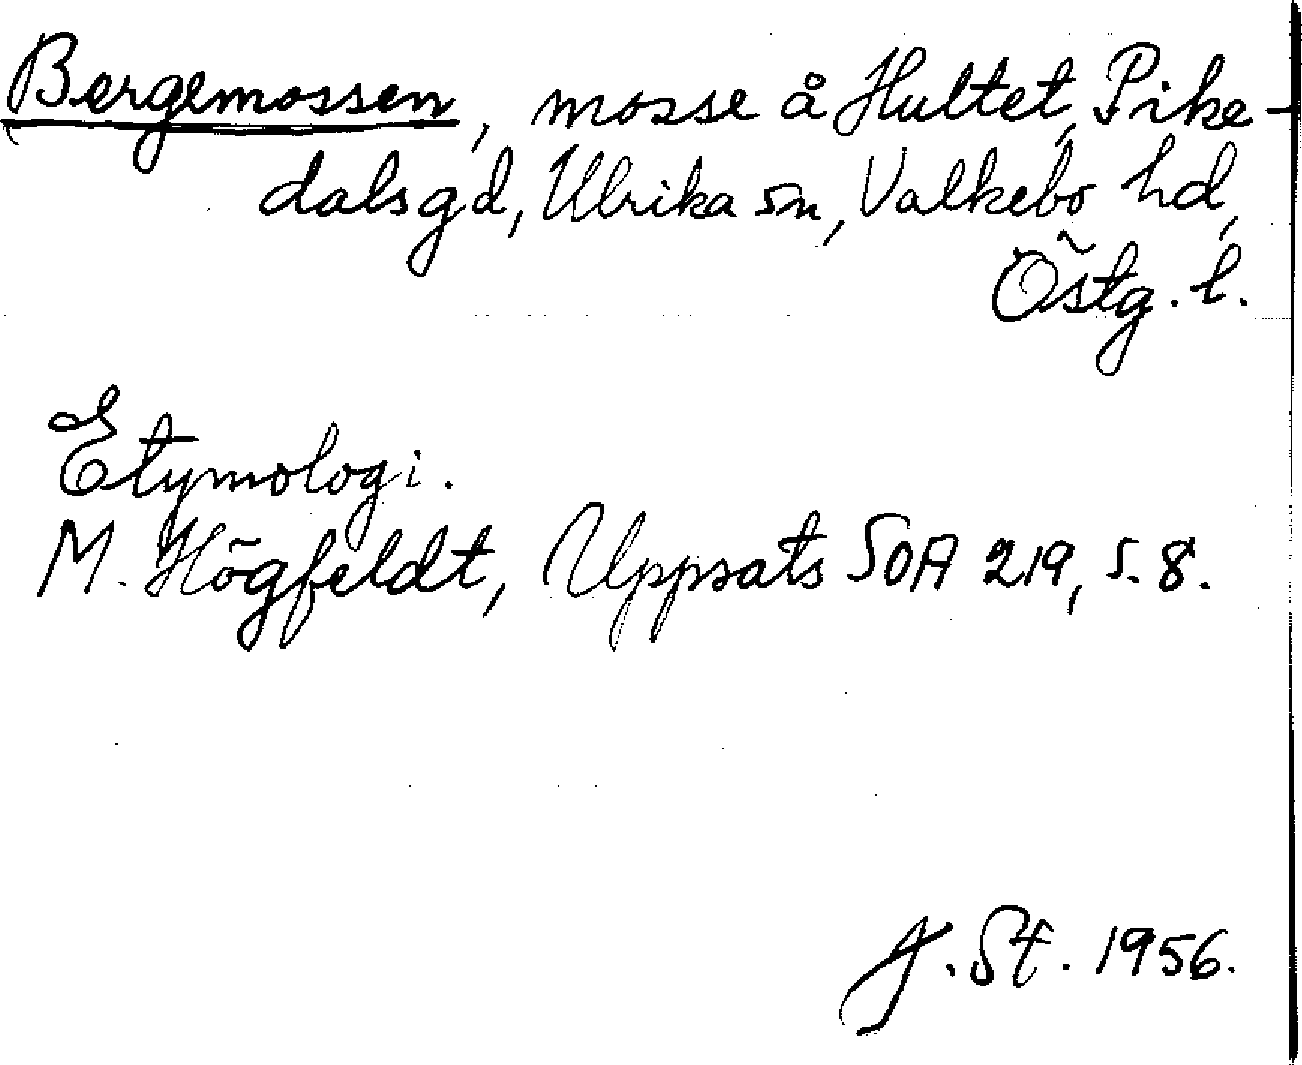 Bergemossen, mosse å Hultet, Pike-
dalsgd, Ulrika sn, Valkebo hd,
Östg. l.
Etymologi.
M. Högfeldt, Uppsats SOA 219, s. 8.
J. St. 1956.